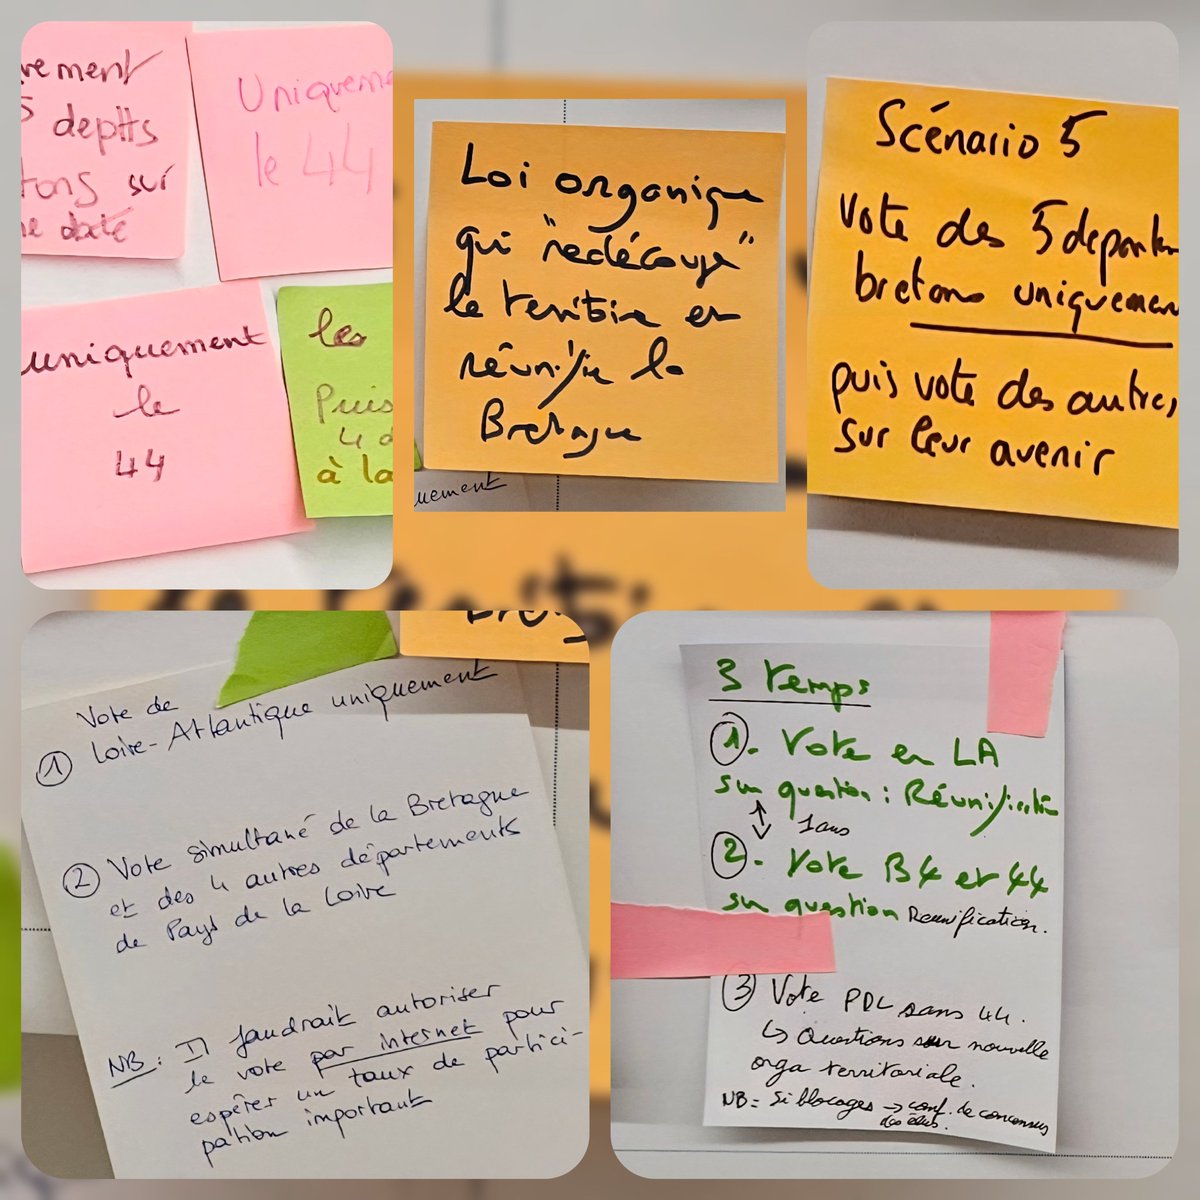 vement
5 deptts
tons sur
ne date
Uniqueme
le 44
uniquement
le
44
les
Puis
4 d
à la
Loi organique
qui "redécoupe"
le territoire et
réunifie la
Bretagne
uement
Scénario 5
Vote des 5 departem
bretons uniquemen
puis vote des autres
sur leur avenir
Vote de
① Loire-Atlantique uniquement
② Vote simultané de la Bretagne
et des 4 autres départements
de Pays de la Loire
NB : Il faudrait autoriser
le vote par internet pour
espérer un taux de partici-
pation important
3 temps
①. Vote en LA
sur question : Réunification
1 ans
②. Vote B4 et 44
sur question Reunification.
③ Vote PDL sans 44.
↳ Questions sur nouvelle
orga territoriale.
NB = Si blocages → conf. de consensus
des élus.